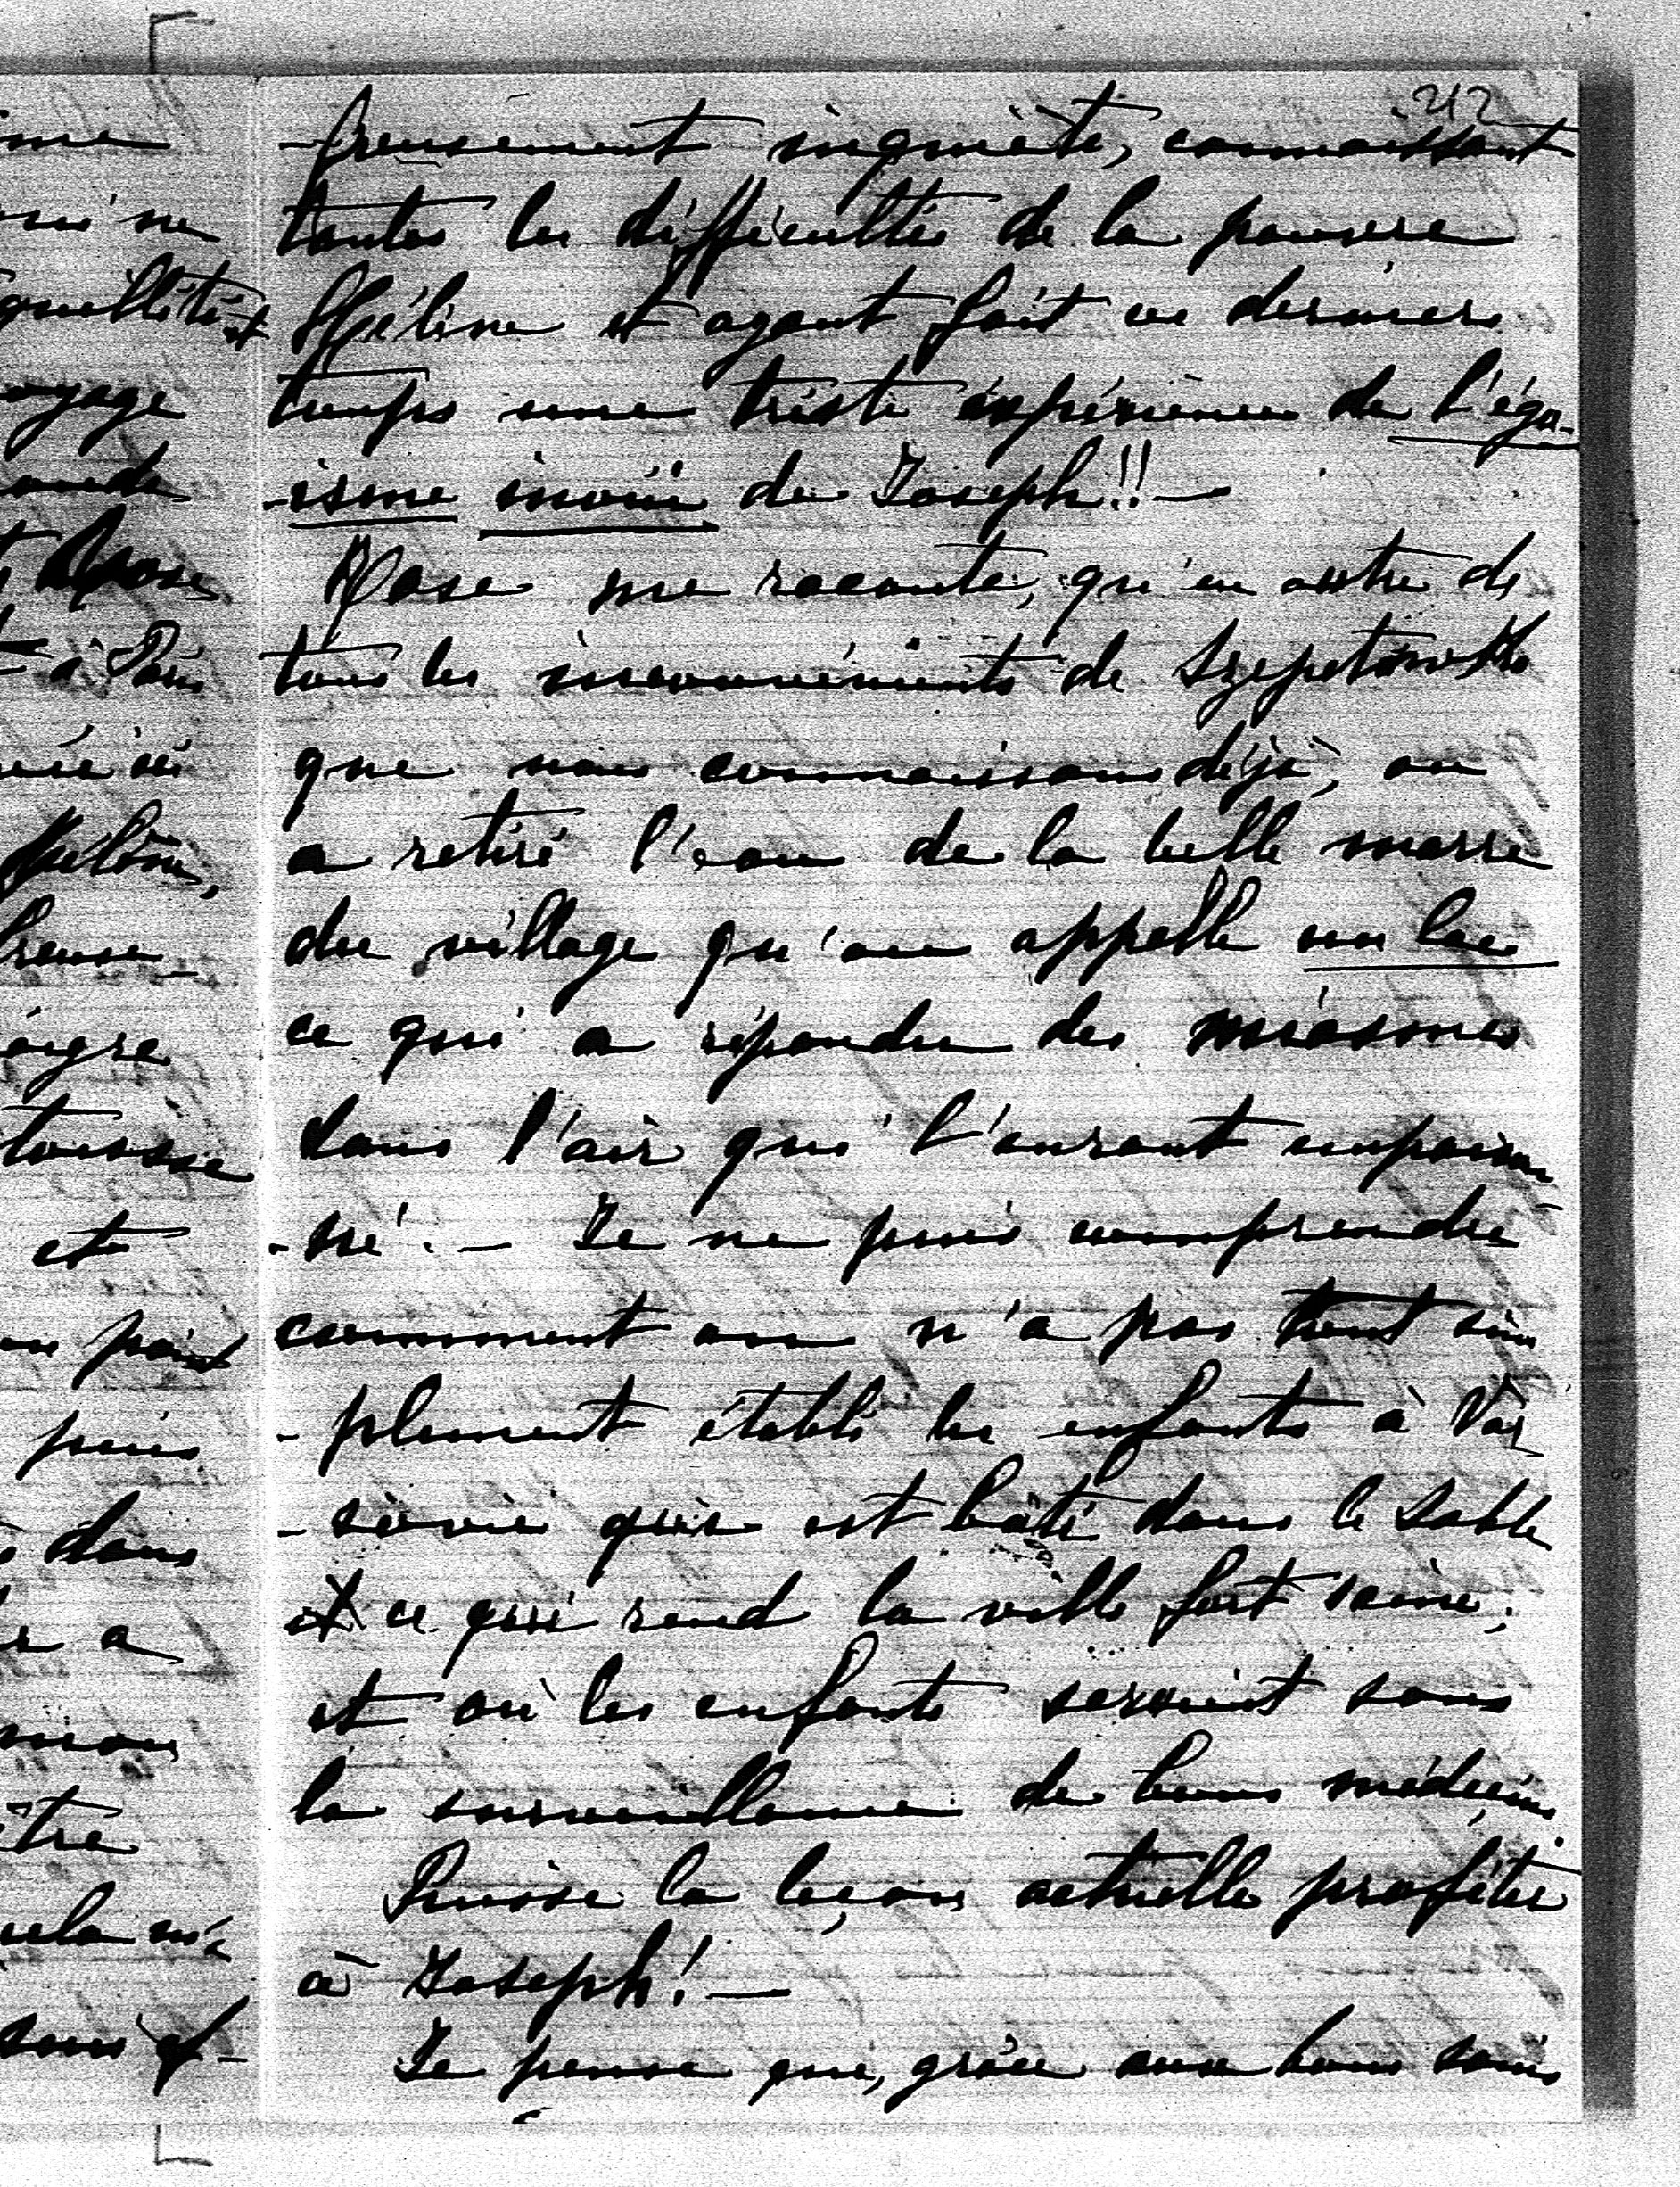 212
-freusement inquiète, connaissant
toutes les difficultés de la pauvre
Hélène et ayant fait ces derniers
temps une triste expérience de l'égo-
-isme inouï de Joseph!! —
Rose me raconte, qu'en outre de
tous les inconvénients de Szepetowka
que nous connaissons déjà, on
a retiré l'eau de la belle marre
du village qu'on appelle un lac
ce qui a répandu des miasmes
dans l'air qui l'auront empoison
-né. — Je ne puis comprendre
comment on n'a pas tout sim
-plement établi les enfants à Var
-sovie qui est bâti dans le sable
et ce qui rend la ville fort saine;
et où les enfants seraient sous
la surveillance de bons médecins.
Puisse la leçon actuelle profiter
à Joseph! —
Je pense que, grâce aux bons soins